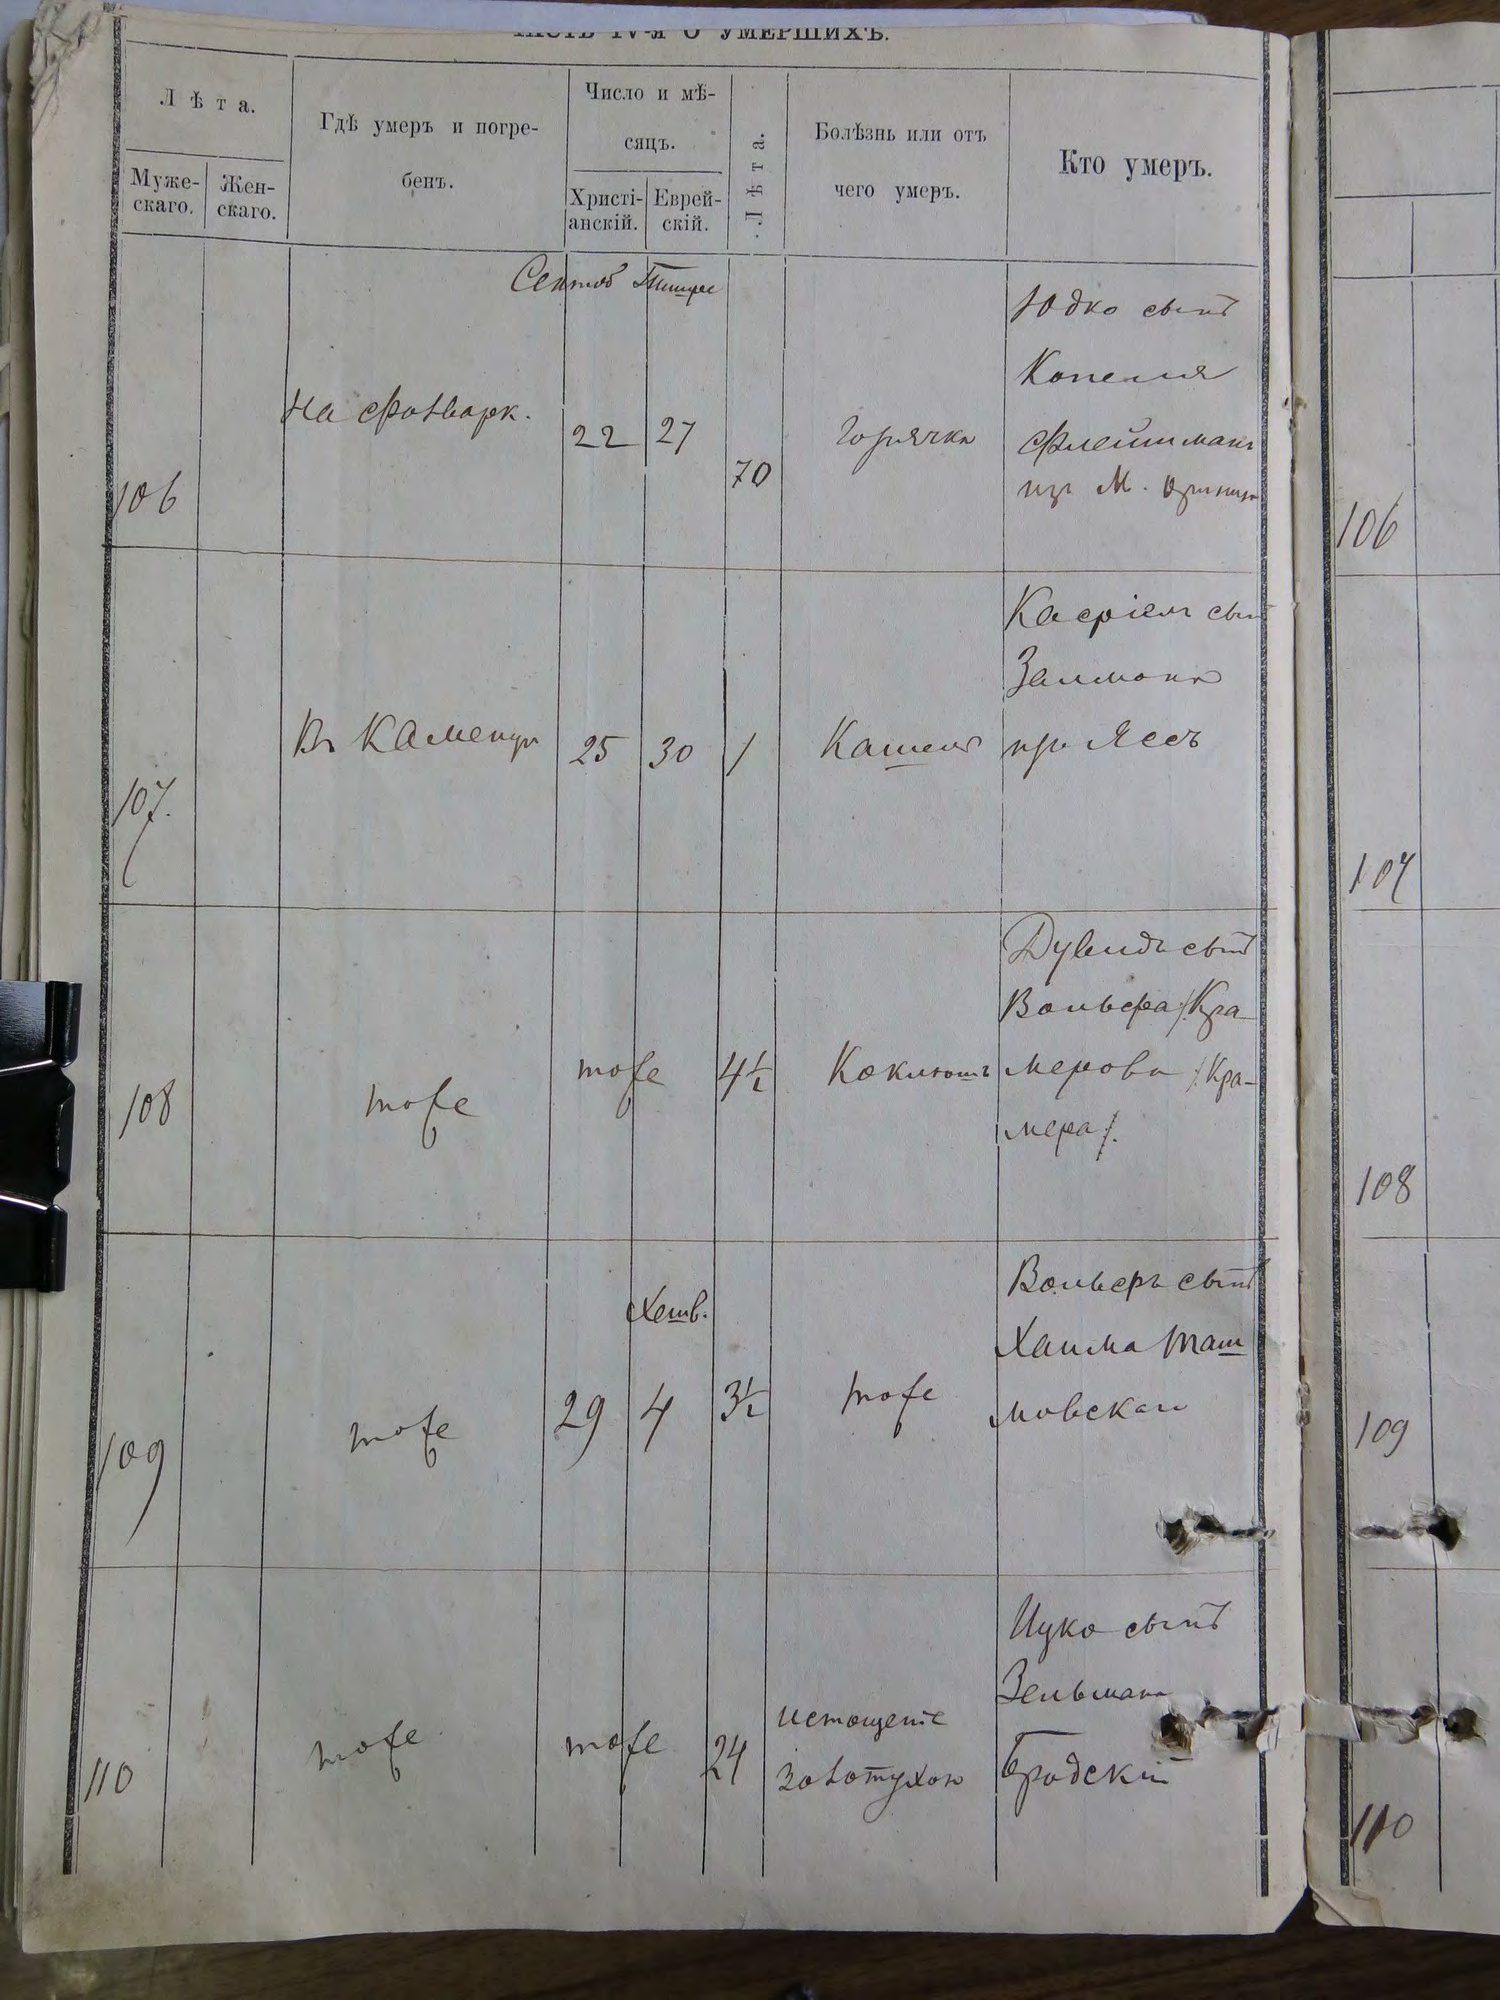 ЧАСТЬ IV-я О УМЕРШИХЪ.
Лѣта.
Муже-
скаго.
Жен-
скаго.
Гдѣ умеръ и погре-
бенъ.
Число и мѣ-
сяцъ.
Христі-
анскій.
Еврей-
скій.
Лѣта.
Болѣзнь или отъ
чего умеръ.
Кто умеръ.
106
На Фольварк.
Сентяб Тишре
22 27
70
Горячка
Юдко сынъ
Копеля
Флейшманъ
изъ М.
106
107.
Въ Каменцѣ
25 30 1
Кашель
Касріель сынъ
Залмона
при Ясеѣ
107
108
тоже
тоже
4½
Коклюшъ
Дувидъ сынъ
Вольфа /:Кра-
мерова /:Кра-
мера/:
108
109
тоже
Хешв.
29 4
3½
тоже
Вольфъ сынъ
Хаима Таш
мовскаго
109
110
тоже
тоже
24
истощеніе
золотухою
Ицко сынъ
Зельмана
Бродскій
110